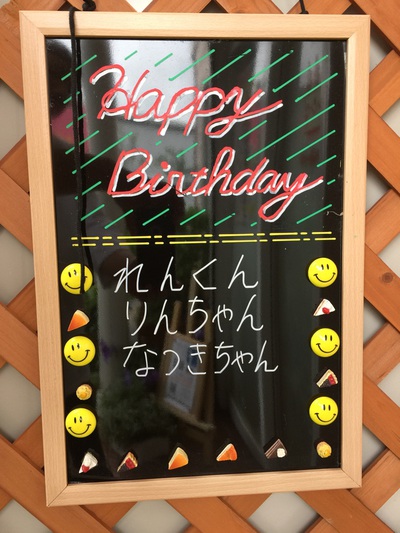 Happy
Birthday
れんくん
りんちゃん
なつきちゃん